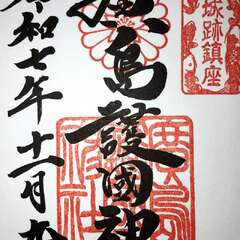 城跡鎮座
廣島護國神
令和七年十一月